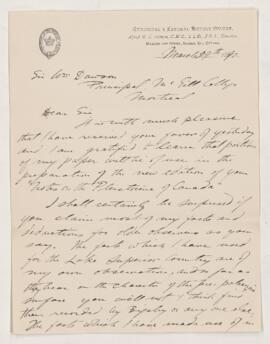 Geological & Natural History Survey,
Alfred R. C. Selwyn, C.M.G., LL.D., F.R.S., Director
Museum and Office, Sussex St., Ottawa,
March 29th 189
Sir Wm Dawson
Principal McGill College
Montreal
Dear Sir
It is with much pleasure
that I have received your favor of yesterday
and I am gratified to learn that portions
of my paper will be of use in the
preparation of the new edition of your
"Notes on the Pleistocene of Canada"
I shall certainly be surprised if
you claim most of my facts and
deductions for older observers as you
say. The facts which I have used
for the Lake Superior country are of
my own observation, and so far as
they bear on the character of the pre-
surface you will not I think find
them recorded by Bigsby or any one else.
The facts which I have made use of in